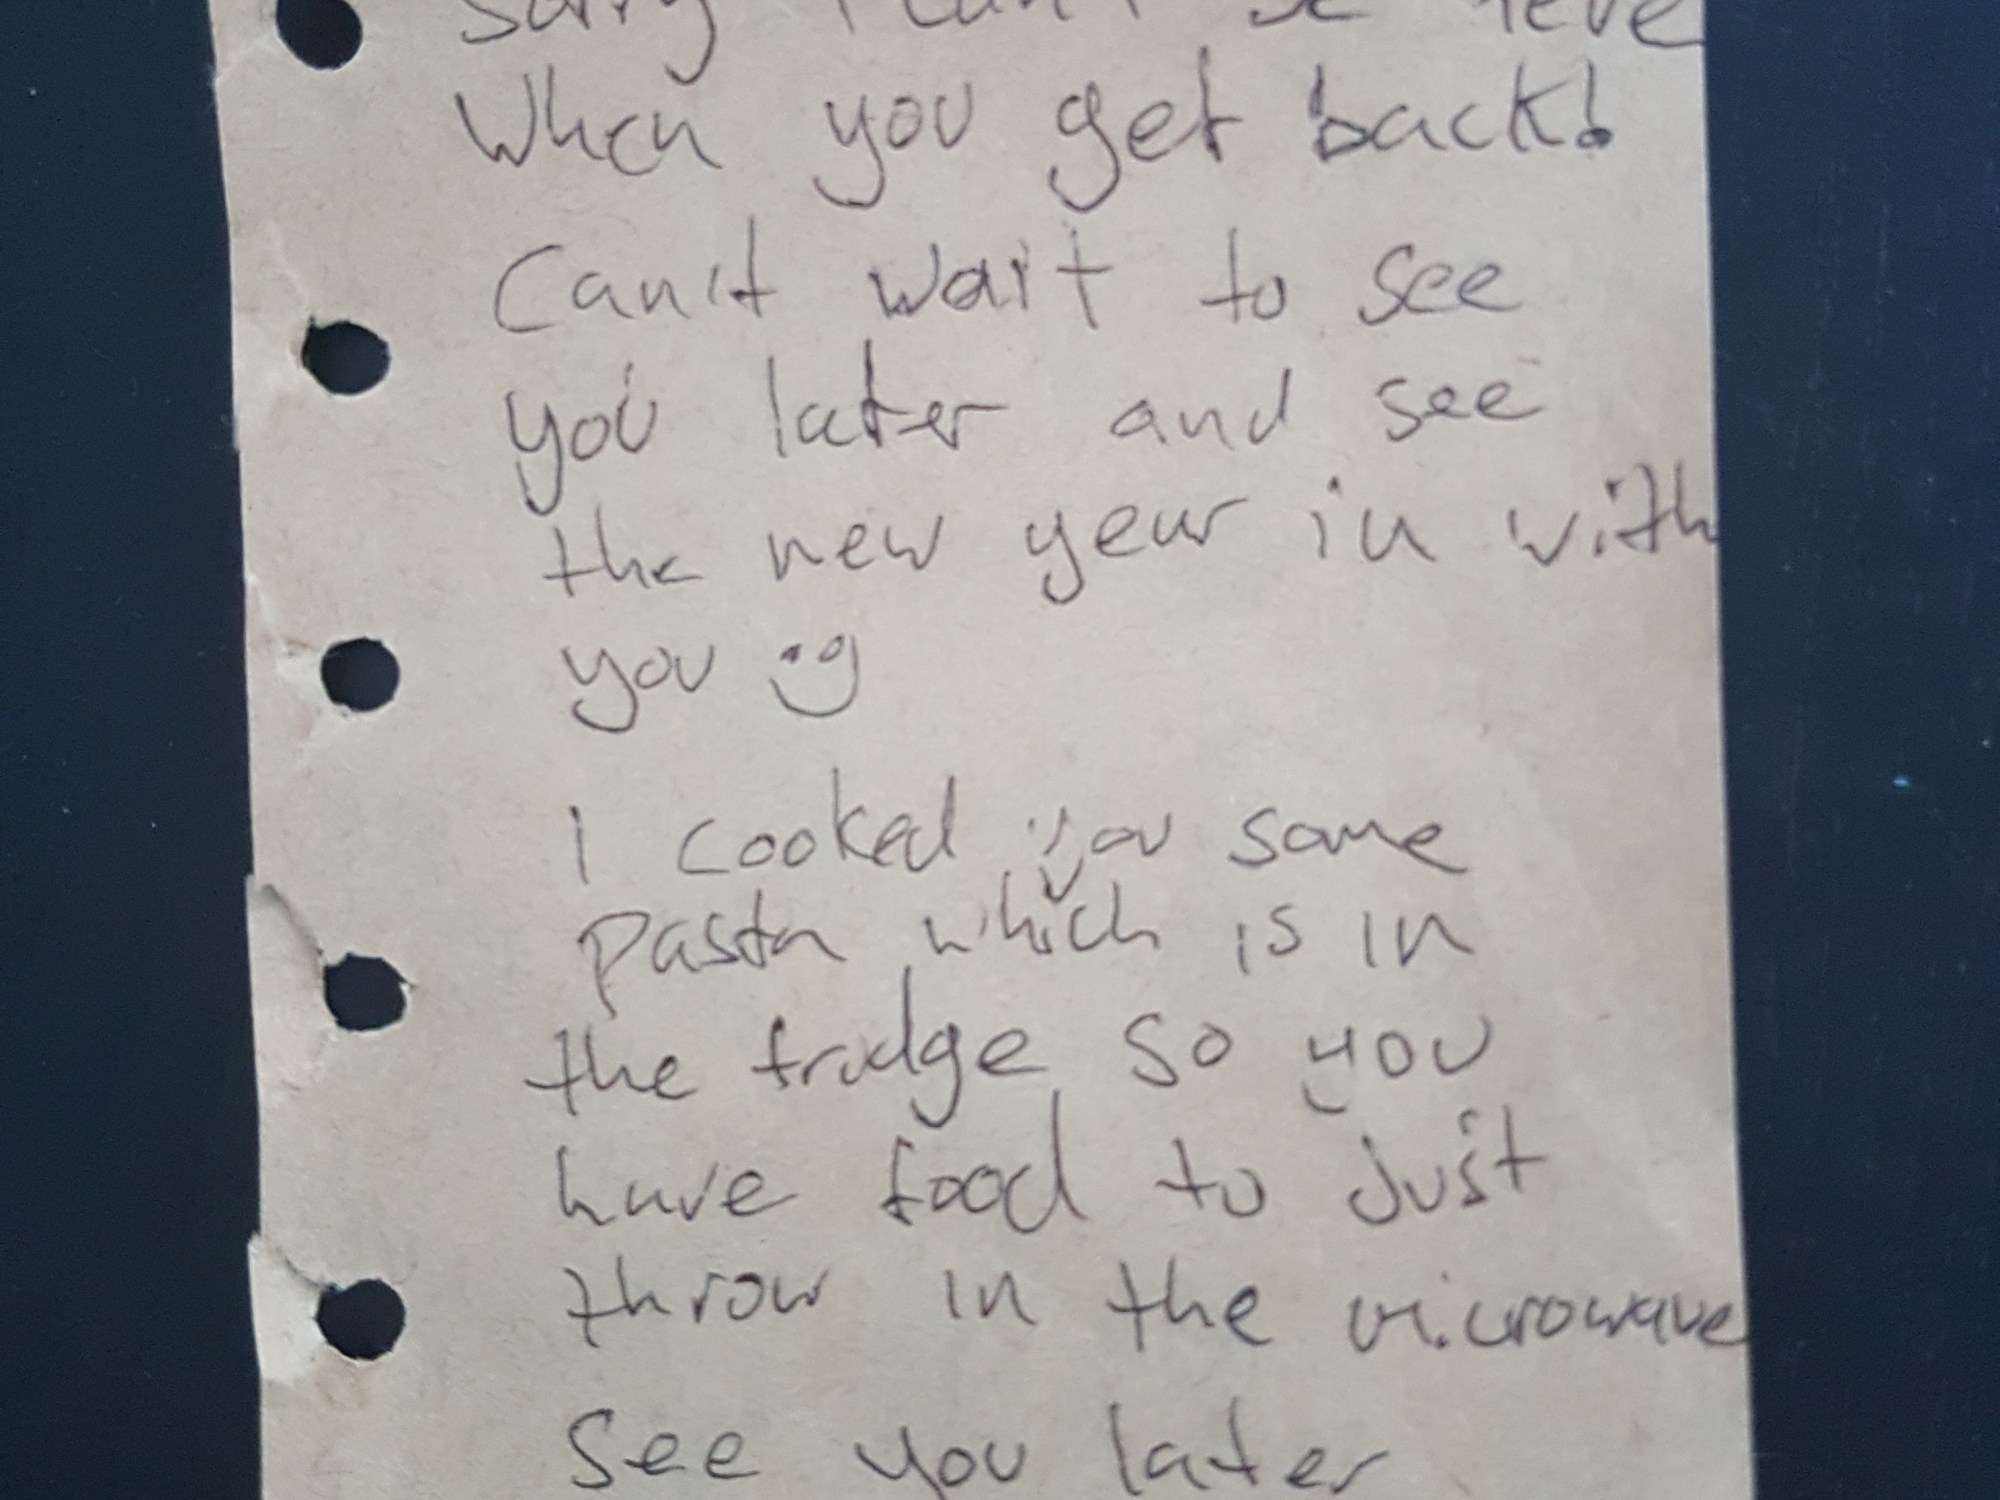 Sorry I can't be here
When you get back!
Can't wait to see
you later and see
the new year in with
you :)
I cooked you some
pasta which is in
the fridge so you
have food to just
throw in the microwave
See you later